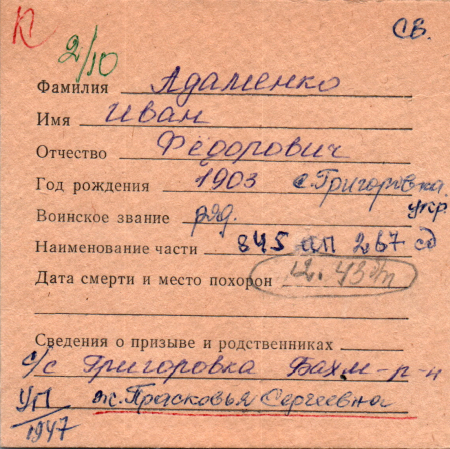 К
св.
2/10
Фамилия Адаменко
Имя Иван
Отчество Фёдорович
Год рождения 1903 с. Григоровка.
укр.
Воинское звание ряд.
Наименование части 845 ап 267 сд
Дата смерти и место похорон 12.43
Сведения о призыве и родственниках
с/с Григоровка Бахм-р-н
УП ж. Прасковья Сергеевна
1947